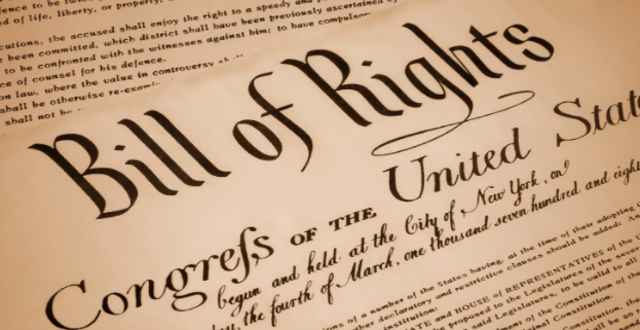 of life, liberty, or property,
cutions, the accused shall enjoy the right to a speedy and
been committed, which district shall have been previously ascertained
to be confronted with the witnesses against him; to have compulsory
ce of counsel for his defence.
on law, where the value in controversy
shall be otherwise
shall not be
Bill of Rights
Congreſs OF THE United State
begun and held at the City of New York, on
the fourth of March, one thousand seven hundred and eight
of a number of the States having, at the time of their adopting
declaratory and restrictive clauses should be added:
institution.
AND HOUSE of REPRESENTATIVES of the
to the Legislatures of the
Legislatures, to be valid to all
Constitution
of the Constitution.